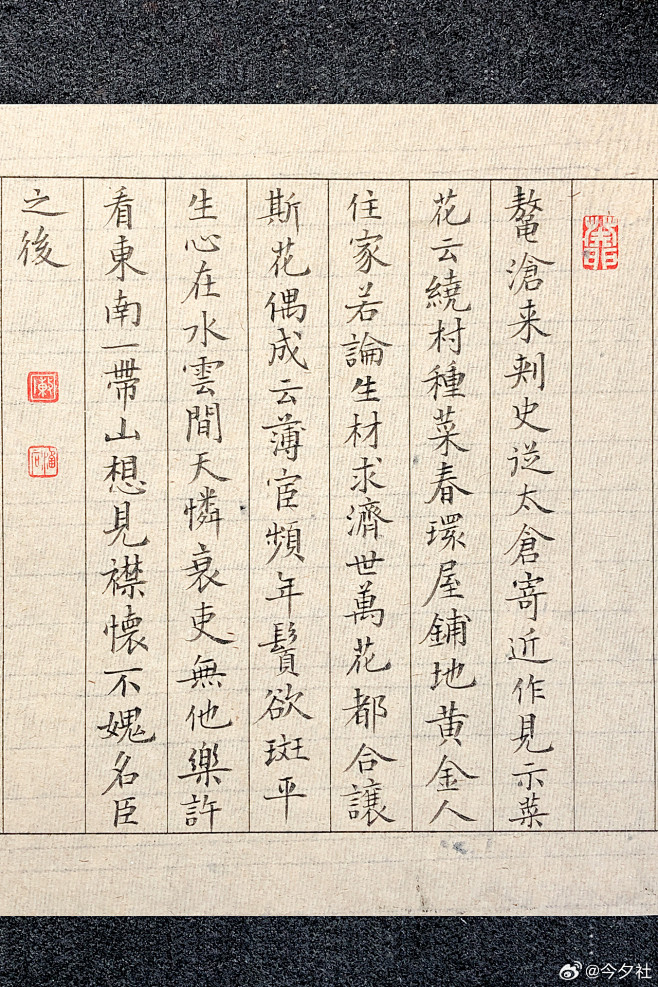 鼇滄来刺史從太倉寄近作見示菜
花云繞村種菜春環屋鋪地黄金人
住家若論生材求濟世萬花都合讓
斯花偶成云薄宦頻年鬢欲斑平
生心在水雲間天憐衰吏無他樂許
看東南一帶山想見襟懷不媿名臣
之後
@今夕社